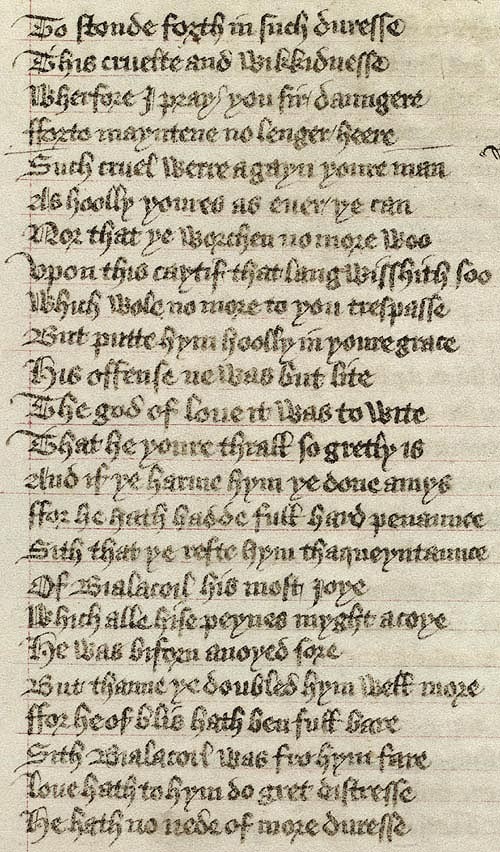 To stonde forth in such duresse
This cruelte and wikkidnesse
Wherfore I pray you sir daungere
fforto mayntene no lenger heere
Such cruel werre agayn youre man
As hoolly youres as euer ye can
Nor that ye worchen no more woo
Vpon this caytif that lang wisshith soo
Which wole no more to you trespasse
But putte hym hoolly in youre grace
His offense ne was but lite
The god of loue it was to wite
That he youre thrall so gretly is
And if ye harme hym ye done amys
ffor he hath hadde full hard penaunce
Sith that ye refte hym thaqueyntaunce
Of Bialacoil his most joye
Which alle hise peynes myght acoye
He was biforn anoyed sore
But thanne ye doubled hym well more
ffor he of blis hath ben full bare
Sith Bialacoil was fro hym fare
Loue hath to hym do gret distresse
He hath no nede of more duresse